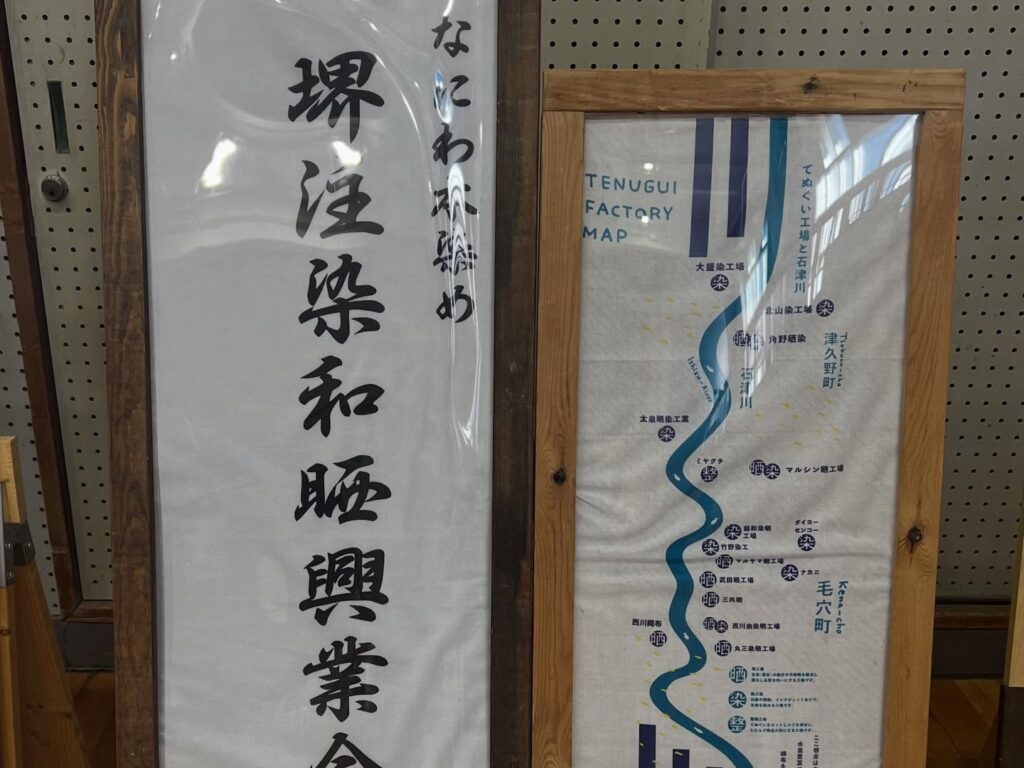 なにわ本染め
堺注染和晒興業会
TENUGUI
FACTORY
MAP
てぬぐい工場と石津川
大盛染工場
染
北山染工場 染
晒 角野晒染
Tsukuno-cho
津久野町
Ishizu-River
石津川
太泉晒染工業
染
ミヤグチ
整
晒染 マルシン晒工場
染 昭和染晒
工場
ダイヨー
センコー
染
染 竹野染工
晒 マルヤマ晒工場
染 ナカニ
晒 武田晒工場
晒 三共晒
Kena-cho
毛穴町
西川織布
晒
晒染 西川由染晒工場
晒 丸三染晒工場
晒
染
整